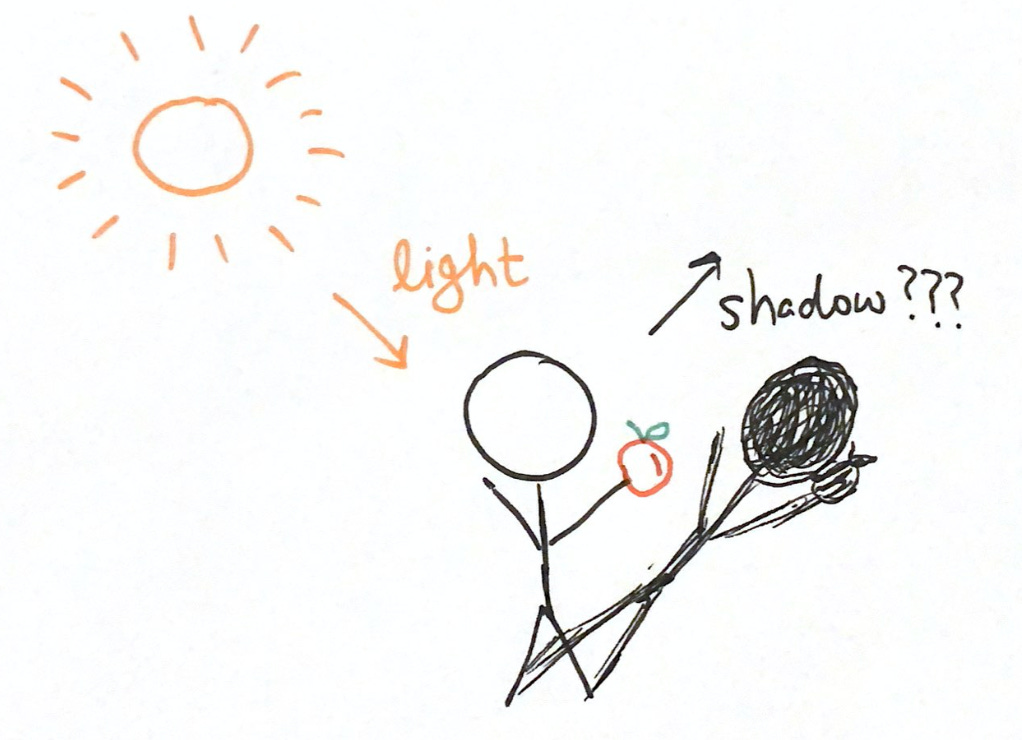 light
shadow???